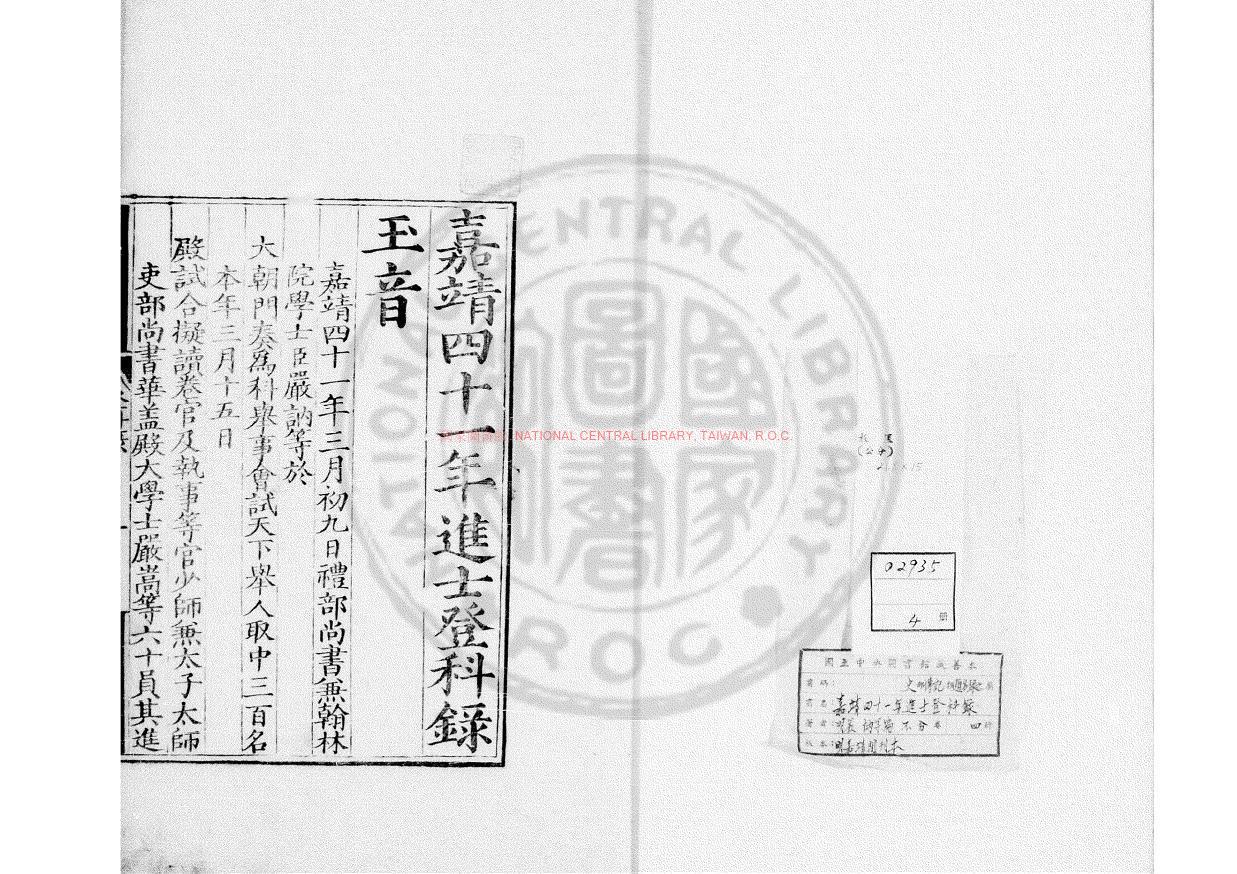 嘉靖四十一年進士登科錄
玉音
嘉靖四十一年三月初九日禮部尚書兼翰林
院學士臣嚴訥等於
大朝門奏爲科舉事會試天下舉人取中三百名
本年三月十五日
殿試合擬讀卷官及執事等官少師兼太子太師
吏部尚書華盖殿大學士嚴嵩等六十員其進
02935
4 冊
國立中央圖書館藏善本
書名 嘉靖四十一年進士登科錄
不分卷 四冊
版本:明嘉靖間刊本
NATIONAL CENTRAL LIBRARY, TAIWAN, R.O.C.
國家圖書館
NATIONAL CENTRAL LIBRARY
R O C